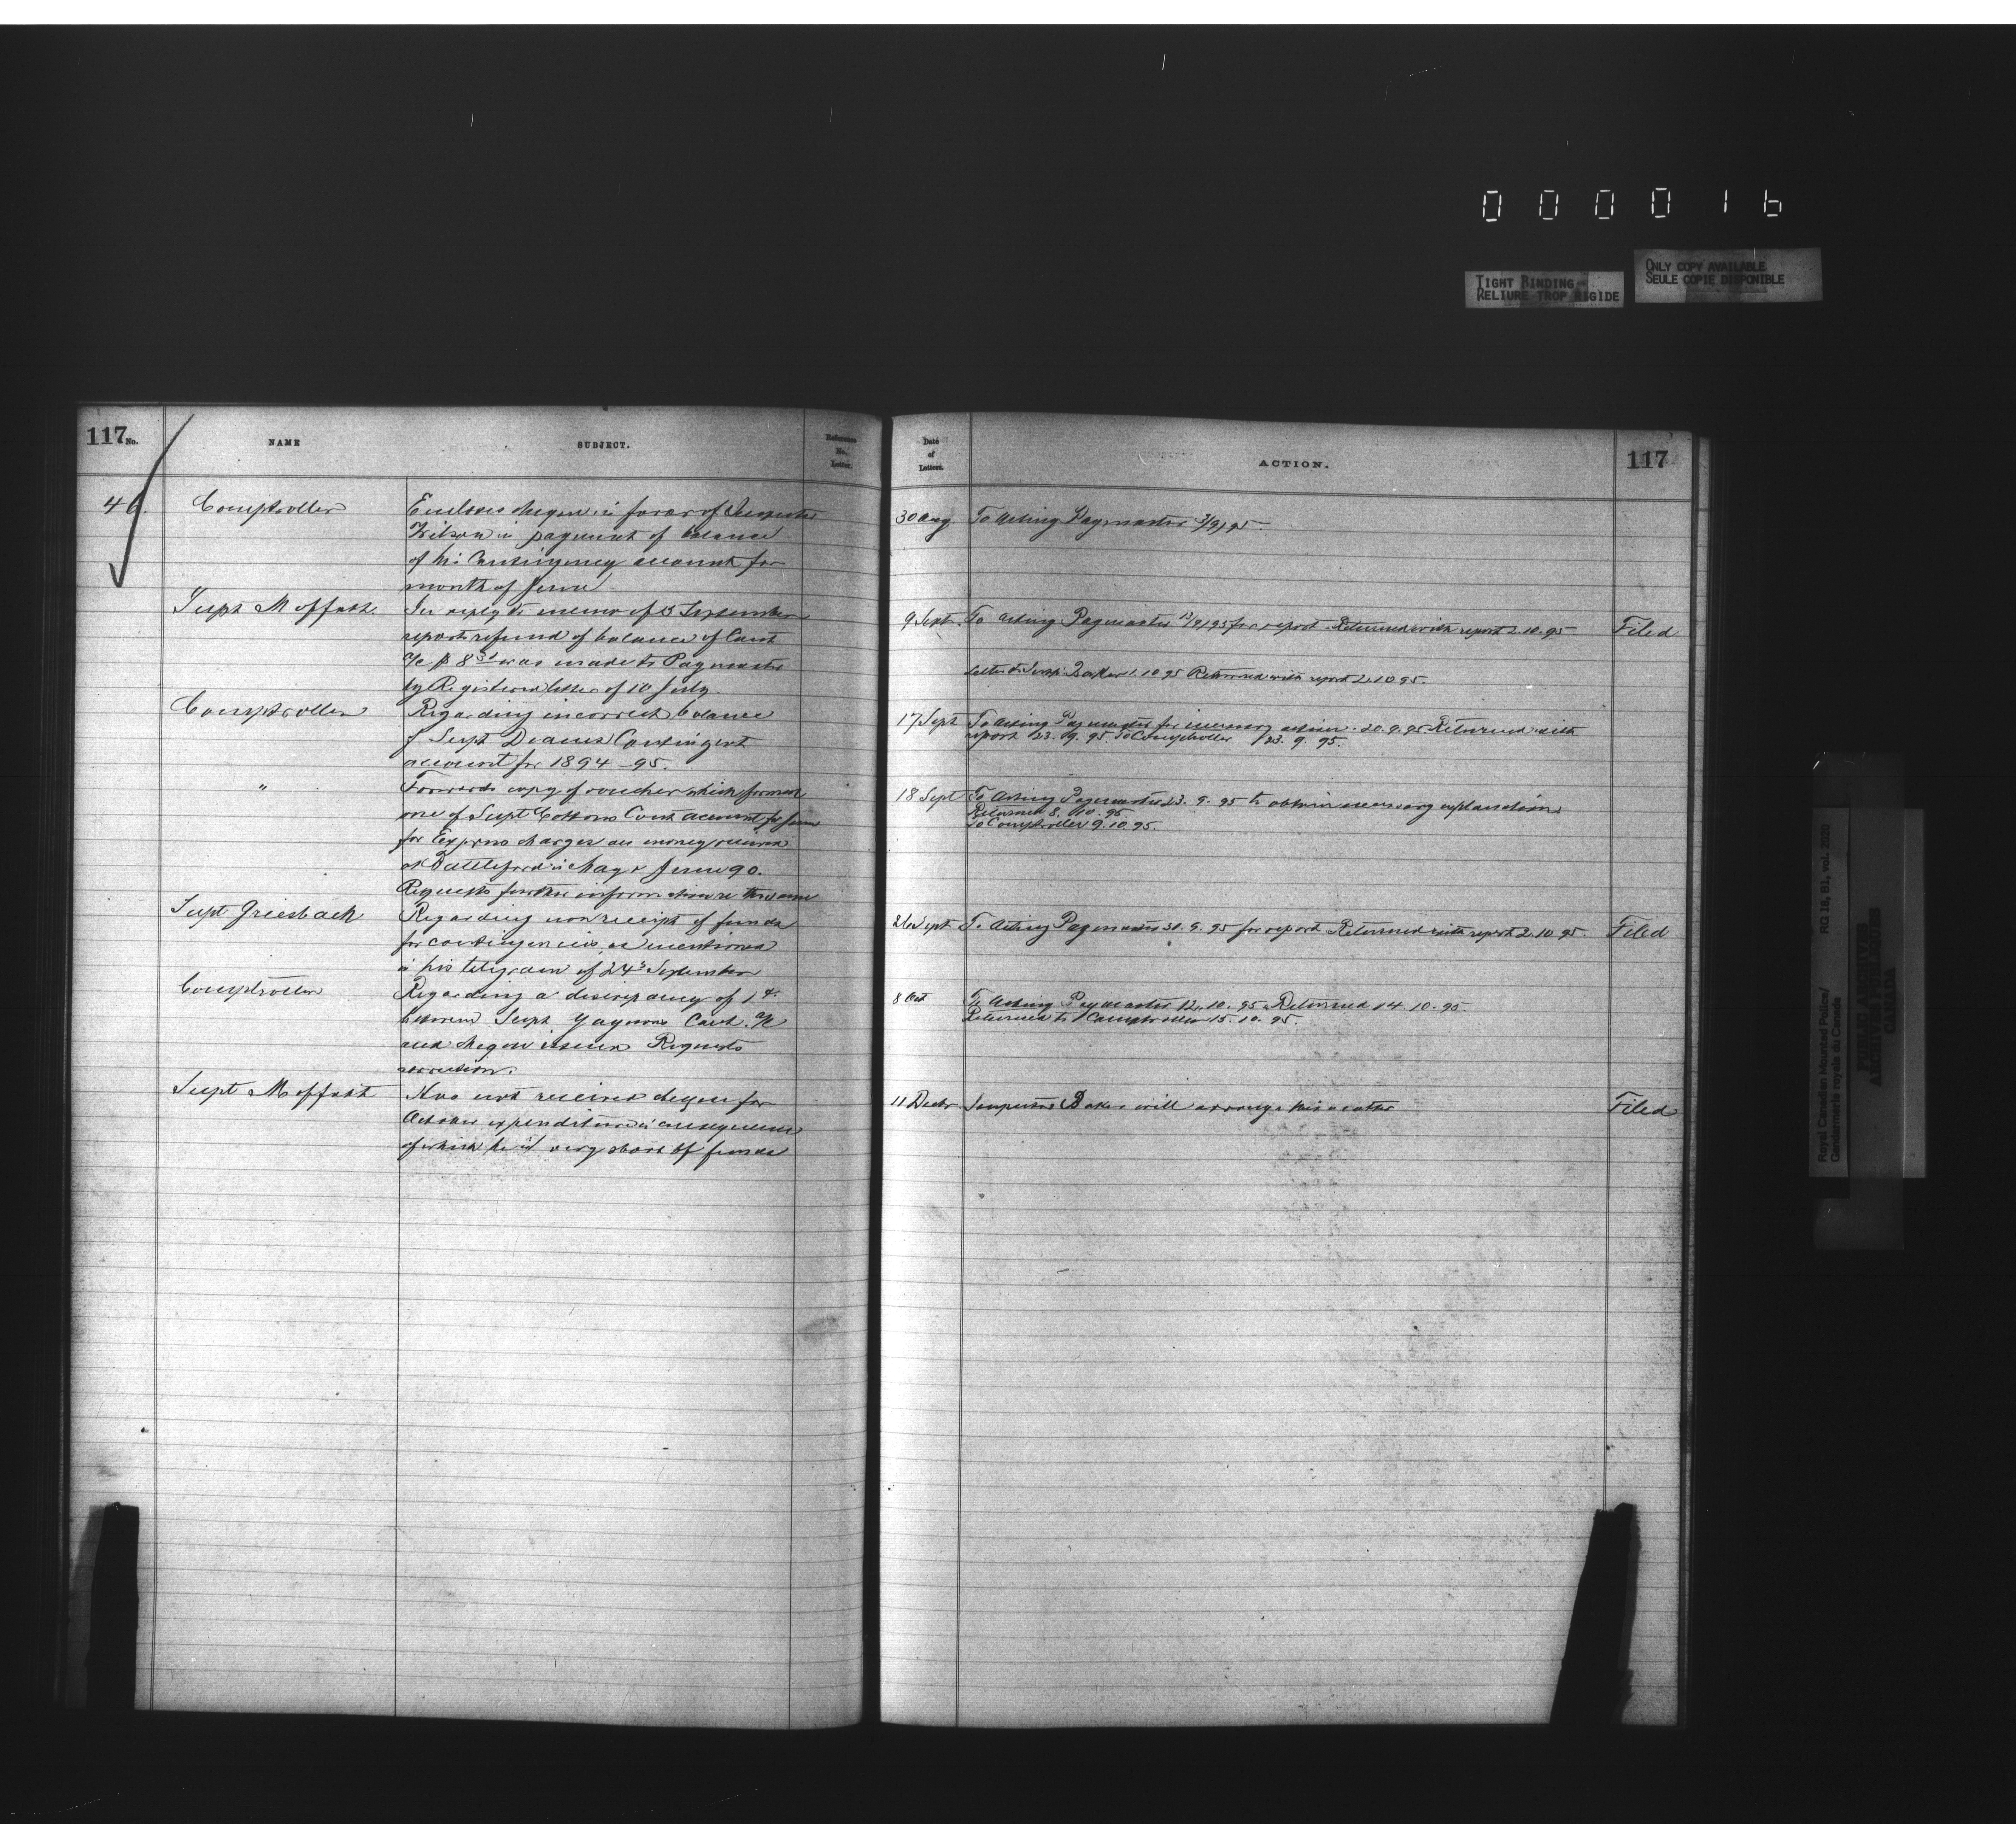 000016
TIGHT BINDING
RELIURE TROP RIGIDE
ONLY COPY AVAILABLE
SEULE COPIE DISPONIBLE
117 No.
NAME
SUBJECT.
Reference No. Letter.
Date of Letters.
ACTION.
117
46.
Comptroller
Encloses cheque in favor of Inspector
Wilson in payment of balance
of his Contingency account for
month of June
30 Aug.
To Acting Paymaster 3/9/95
Supt Moffatt
In reply to memo of 3 September
reports refund of balance of Cont
a/c was made to Paymaster
by Registered letter of 10 July.
9 Sept.
To Acting Paymaster 12/9/95 for report. Returned with report 2.10.95
Letter to Insp. Baker 1.10.95 Returned with report 2.10.95.
Filed
Comptroller
Regarding incorrect balance
of Supt Deanes Contingent
account for 1894-95.
17 Sept
To Acting Paymaster for necessary action. 20.9.95 Returned with
report 23.9.95. To Comptroller 23.9.95.
"
Forwards copy of voucher which formed
one of Supt Cottons Cont account for June
for Express charges on money received
at Battleford in May & June 90.
Requests further information re the same
18 Sept
To Acting Paymaster 23.9.95 to obtain necessary explanation
Returned 8.10.95
To Comptroller 9.10.95.
Supt Griesbach
Regarding non receipt of funds
for contingencies as mentioned
in his telegram of 24th September
26 Sept
To Acting Paymaster 30.9.95 for report Returned with report 2.10.95.
Filed
Comptroller
Regarding a discrepancy of 1¢
between Supt Gagnons Cont. a/c
and cheque issued Requests
correction.
8 Oct
To Acting Paymaster 12.10.95 Returned 14.10.95.
Returned to Comptroller 15.10.95.
Supt Moffatt
Has not received cheque for
October expenditure in consequence
of which he is very short of funds
11 Decbr
Inspector Baker will arrange this matter
Filed
Royal Canadian Mounted Police/
Gendarmerie royale du Canada
RG 18, B1, vol. 2020
PUBLIC ARCHIVES
ARCHIVES PUBLIQUES
CANADA